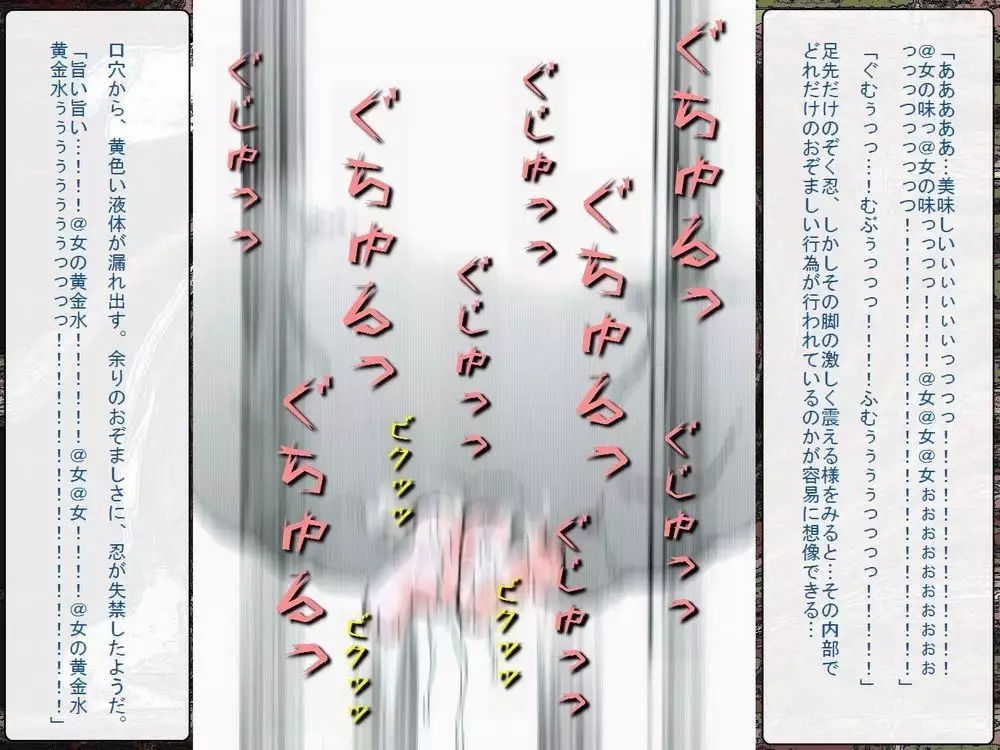 「ああああぁ…美味しいぃぃぃぃぃっっっっ！！！！！！！！！！！！
＠女の味っ＠女の味っっっっ！！！！＠女＠女＠女ぉぉぉぉぉぉぉぉ
っっっっっっっっっ！！！！！！！！！！！！！！！！！！！！」
「ぐむぅっっ…！むぶぅっっっ！！！！ふむぅぅぅっっっっ！！！！！」
足先だけのぞく忍、しかしその脚の激しく震える様をみると…その内部で
どれだけのおぞましい行為が行われているのかが容易に想像できる…
ぐちゅるっ
ぐじゅっっ
ぐちゅるっ
ぐじゅっっ
ぐじゅっっ
ぐじゅっっ
ぐちゅるっ
ぐちゅるっ
ぐじゅっっ
ビクッッ
ビクッッ
ビクッッ
口穴から、黄色い液体が漏れ出す。余りのおぞましさに、忍が失禁したようだ。
「旨い旨い…！！！＠女の黄金水！！！！！！＠女＠女！！！！＠女の黄金水
黄金水ぅぅぅぅぅぅぅっっっっ！！！！！！！！！！！！！！！！！！」